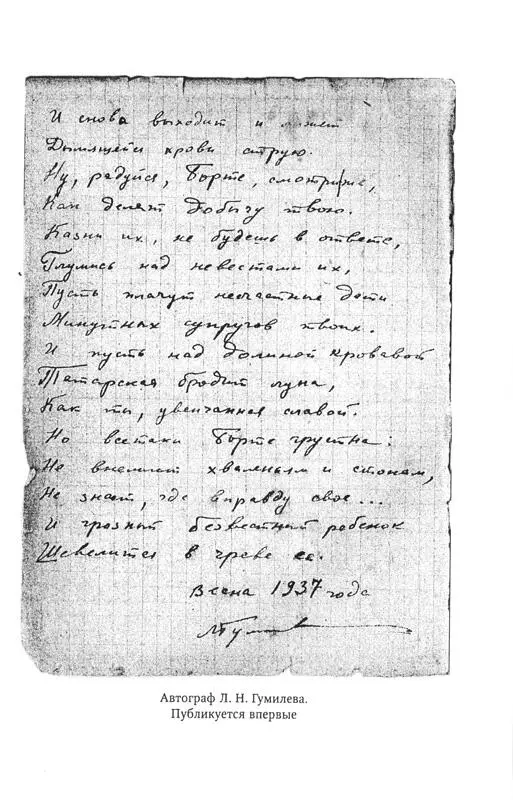 И снова выходит и лижет
Дымящейся крови струю.
Ну, радуйся, Борте, смотри же,
Как делят добычу твою.
Казни их, не будешь в ответе,
Глумись над невестами их,
Пусть плачут несчастные дети
Минутных супругов твоих.
И пусть над долиной кровавой
Татарская бродит луна,
Как ты, увенчанная славой.
Но всетаки Борте грустна:
Не внемлет хваленьям и стонам,
Не знает, где вправду свое...
И грозный безвестный ребенок
Шевелится в чреве ее.
Весна 1937 года
ЛГумилев
Автограф Л. Н. Гумилева.
Публикуется впервые